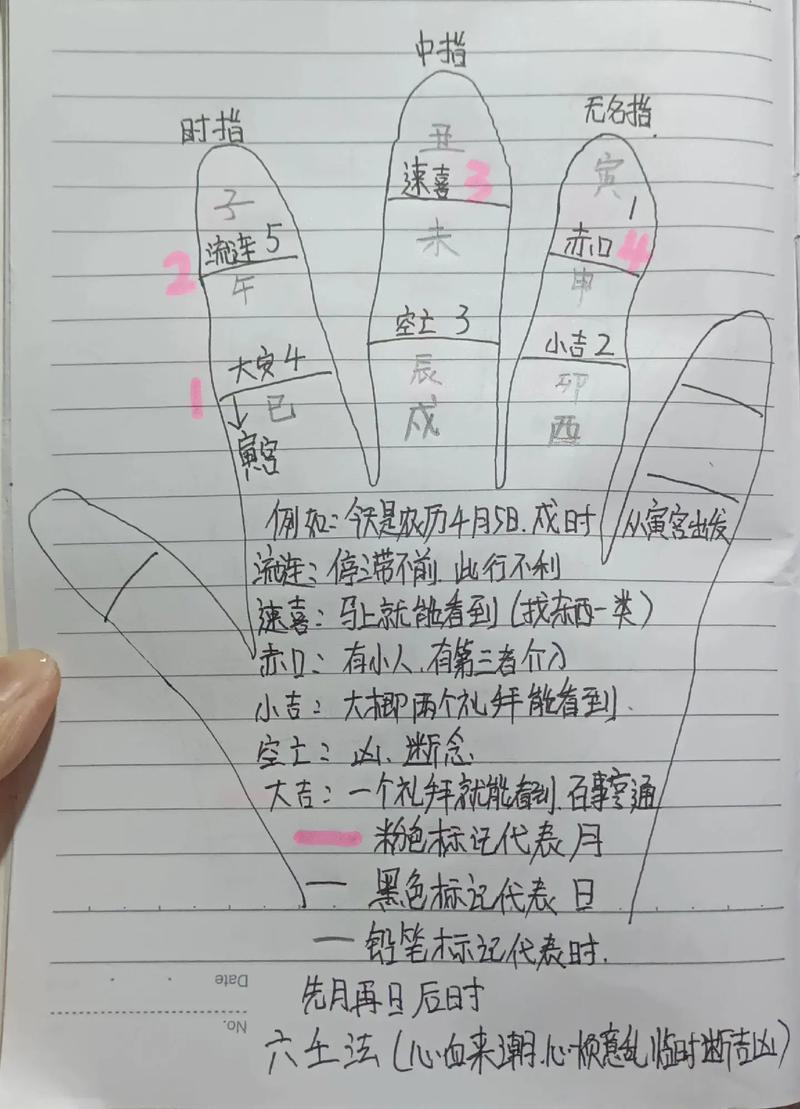 中指
时指
无名指
丑
速喜 3
寅
1
子
流连 5
2
未
赤口 4
午
申
空亡 3
小吉 2
大安 4
1
巳
辰
卯
寅宫
戌
酉
例如：今天是农历4月5日.戌时
从寅宫出发
流连：停滞不前.此行不利
速喜：马上就能看到（找东西一类）
赤口：有小人.有第三者介入
小吉：大概两个礼拜能看到.
空亡：凶、断念
大吉：一个礼拜就能看到.百事亨通
粉色标记代表月
黑色标记代表日
铅笔标记代表时.
先月再日后时
Date
No.
六壬法（心血来潮.心烦意乱临时断吉凶）